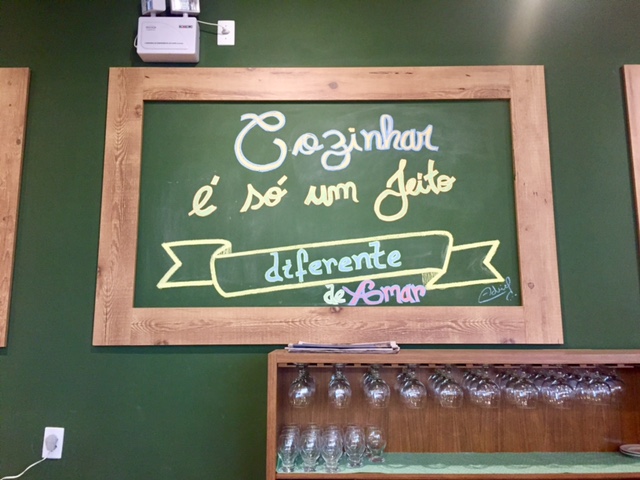 Cozinhar
é só um Jeito
diferente
de Amar